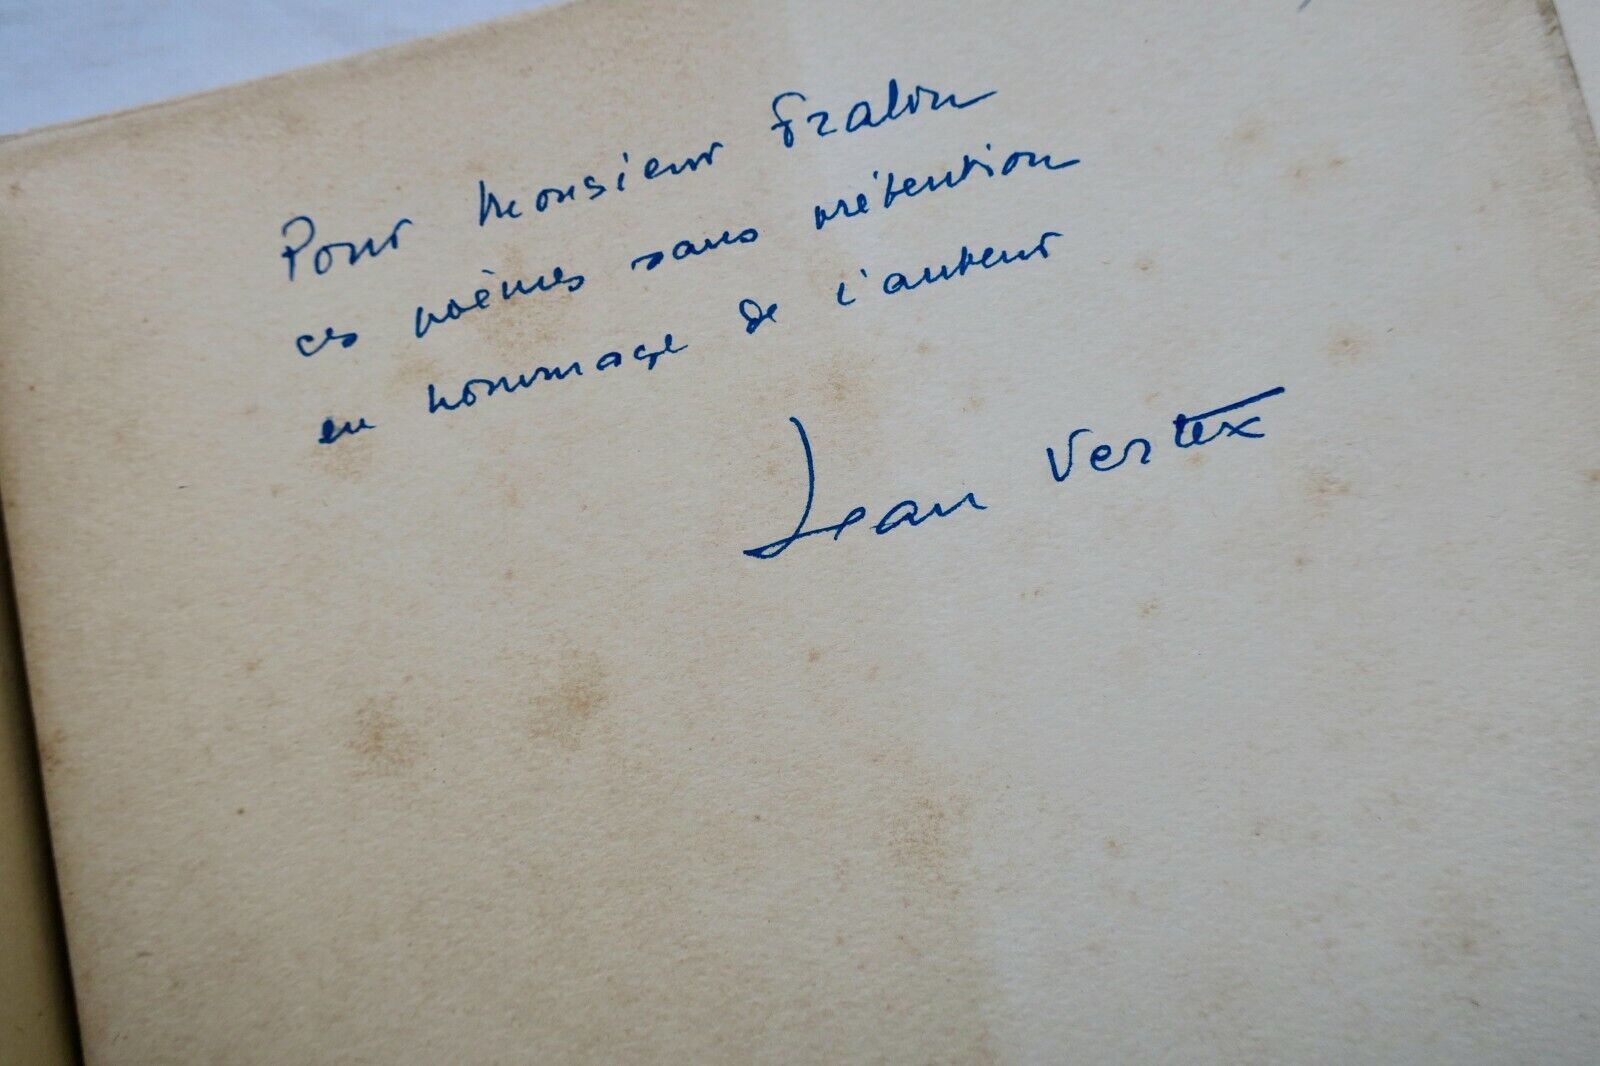 Pour Monsieur Fralon
ces poèmes sans prétention
en hommage de l'auteur
Jean Vertex